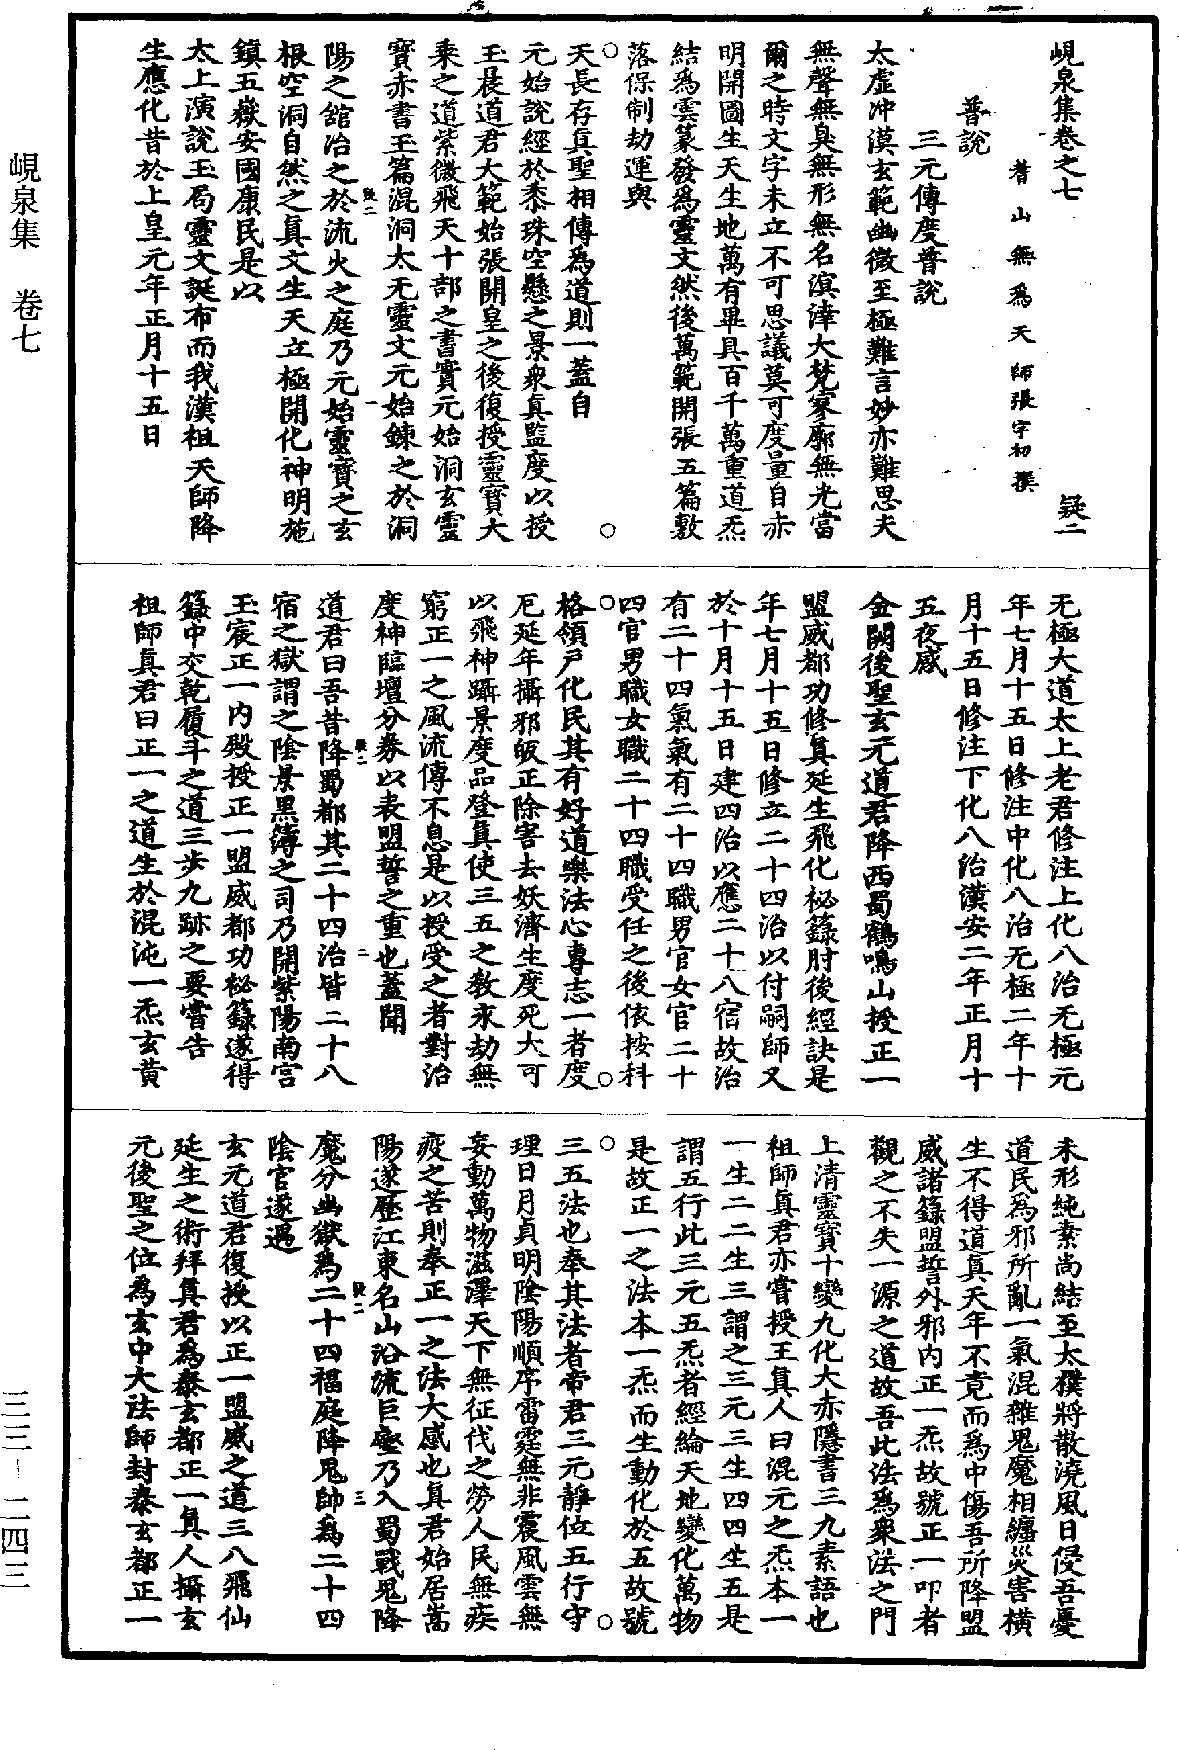 峴泉集卷之七 疑二
耆山無爲天師張宇初撰
普說
三元傳度普說
太虛沖漠玄範幽微至極難言妙亦難思夫
無聲無臭無形無名溟涬大梵寥廓無光當
爾之時文字未立不可思議莫可度量自赤
明開圖生天生地萬有畢具百千萬重道炁
結爲雲篆發爲靈文然後萬範開張五篇敷
落保制劫運與
天長存真聖相傳為道則一蓋自
元始說經於黍珠空懸之景衆真監度以授
玉晨道君大範始張開皇之後復授靈寶大
乘之道紫微飛天十部之書實元始洞玄靈
寶赤書玉篇混洞太无靈文元始鍊之於洞
陽之舘冶之於流火之庭乃元始靈寶之玄
根空洞自然之真文生天立極開化神明施
鎮五嶽安國康民是以
太上演說玉局靈文誕布而我漢祖天師降
生應化昔於上皇元年正月十五日
无極大道太上老君修注上化八治无極元
年七月十五日修注中化八治无極二年十
月十五日修注下化八治漢安二年正月十
五夜感
金闕後聖玄元道君降西蜀鶴鳴山授正一
盟威都功修真延生飛化秘籙肘後經訣是
年七月十五日修立二十四治以付嗣師又
於十月十五日建四治以應二十八宿故治
有二十四氣氣有二十四職男官女官二十
四官男職女職二十四職受任之後依按科
格領戶化民其有好道樂法心專志一者度
厄延年攝邪皈正除害去妖濟生度死大可
以飛神躡景度品登真使三五之教永劫無
窮正一之風流傳不息是以授受之者對治
度神臨壇分券以表盟誓之重也蓋聞
道君曰吾昔降蜀都其二十四治皆二十八
宿之獄謂之陰景黑簿之司乃開紫陽南宮
玉宸正一內殿授正一盟威都功秘籙遂得
籙中交乾履斗之道三步九跡之要嘗告
祖師真君曰正一之道生於混沌一炁玄黄
未形純素尚結至太樸將散澆風日侵吾憂
道民爲邪所亂一氣混雜鬼魔相纏災害橫
生不得道真天年不竟而爲中傷吾所降盟
威諸籙盟誓外邪內正一炁故號正一叩者
觀之不失一源之道故吾此法爲衆法之門
上清靈寶十變九化大赤隱書三九素語也
祖師真君亦嘗授王真人曰混元之炁本一
一生二二生三謂之三元三生四四生五是
謂五行此三元五炁者經綸天地變化萬物
是故正一之法本一炁而生動化於五故號
三五法也奉其法者帝君三元靜位五行守
理日月貞明陰陽順序雷霆無非震風雲無
妄動萬物滋澤天下無征伐之勞人民無疾
疫之苦則奉正一之法大感也真君始居嵩
陽遂歷江東名山沿流巨壑乃入蜀戰鬼降
魔分幽獄爲二十四福庭降鬼帥爲二十四
陰官遂遇
玄元道君復授以正一盟威之道三八飛仙
延生之術拜真君爲泰玄都正一真人攝玄
元後聖之位爲玄中大法師封泰玄都正一
疑二
疑二 二
疑二 三
峴泉集 卷七
三三－二四三